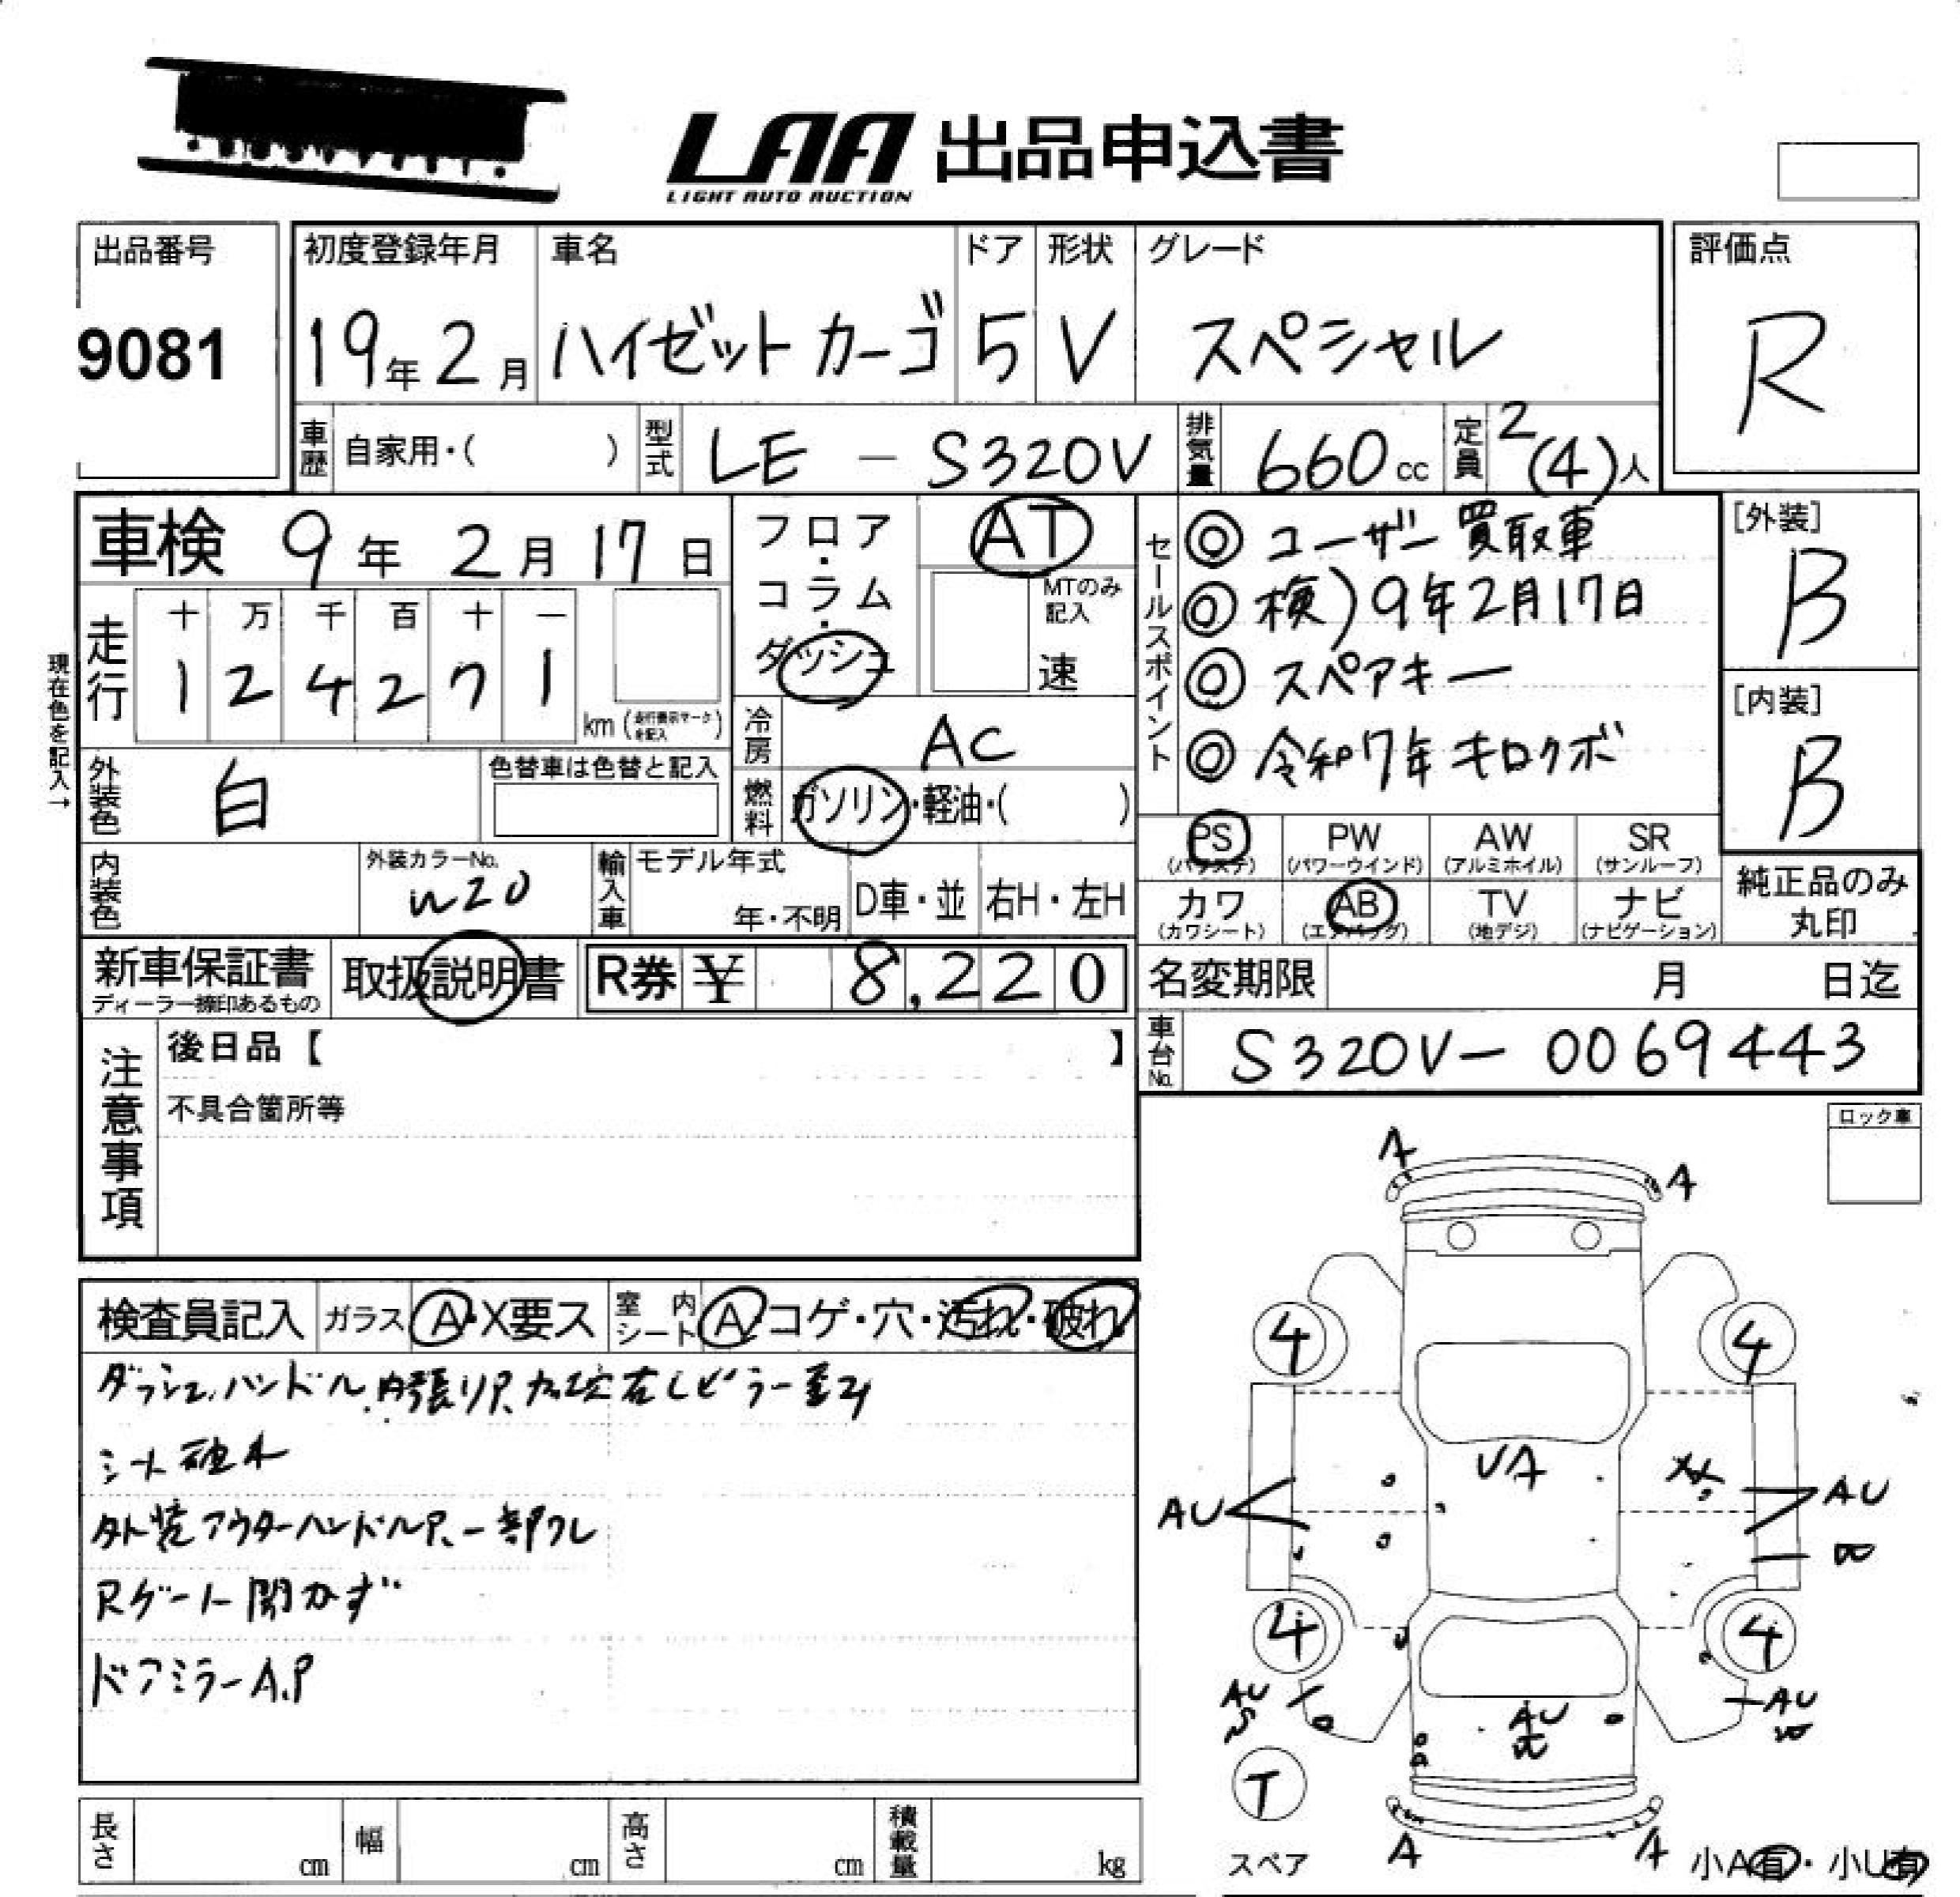 LAA 出品申込書
LIGHT AUTO AUCTION
出品番号
9081
初度登録年月
19年2月
車名
ハイゼットカーゴ
ドア
5
形状
V
グレード
スペシャル
評価点
R
車歴
自家用・( )
型式
LE - S320V
排気量
660cc
定員
2(4)人
車検 9年2月17日
フロア・コラム・ダッシュ
AT
MTのみ記入
速
セールスポイント
◎ ユーザー買取車
◎ 検)9年2月17日
◎ スペアキー
◎ 令和7年キロクボ
[外装]
B
[内装]
B
現在色を記入→
走行
十 万 千 百 十 一
1 2 4 2 7 1
km (走行表示マークを記入)
冷房
AC
外装色
白
色替車は色替と記入
燃料
ガソリン・軽油・( )
PS
PW
(パワーウインド)
AW
(アルミホイル)
SR
(サンルーフ)
内装色
外装カラーNo.
W20
輸入車
モデル年式
年・不明
D車・並
右H・左H
カワ
(カワシート)
AB
(エアバッグ)
TV
(地デジ)
ナビ
(ナビゲーション)
純正品のみ
丸印
新車保証書
ディーラー捺印あるもの
取扱説明書
R券 ¥ 8,220
名変期限 月 日迄
車台No.
S320V-0069443
注意事項
後日品【 】
不具合箇所等
ロック車
検査員記入
ガラス
A・X要ス
室内シート
A コゲ・穴・汚れ・破れ
ダッシュ、ハンドル、内張りP、加工穴右Lピラー
シート破れ
外装アウターハンドルP、一部フレ
Rゲート開かず
ドアミラーA.P
A
A
4
4
UA
AU
AU
4
4
AU
AU
AU
T
スペア
A
A
小A有・小U有
長さ
cm
幅
cm
高さ
cm
積載量
kg